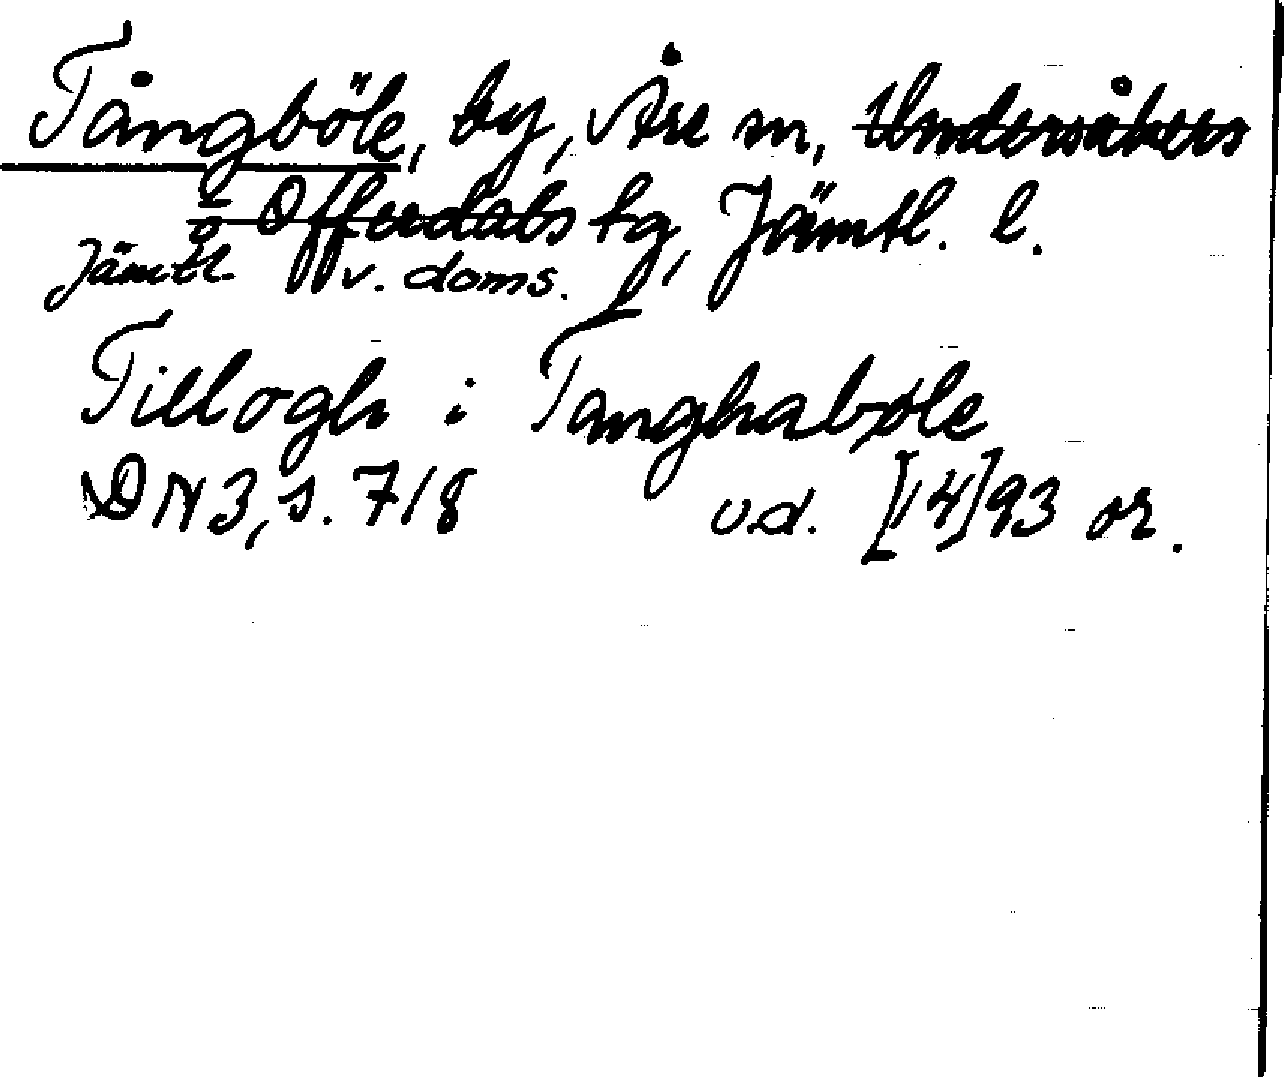 Tångböle, by, Åre sn, Undersåkers
o Offerdals tg, Jämtl. l.
Jämtl v. doms.
Tillogh i Tanghabøle
DN 3, s. 718 u.d. [14]93 or.